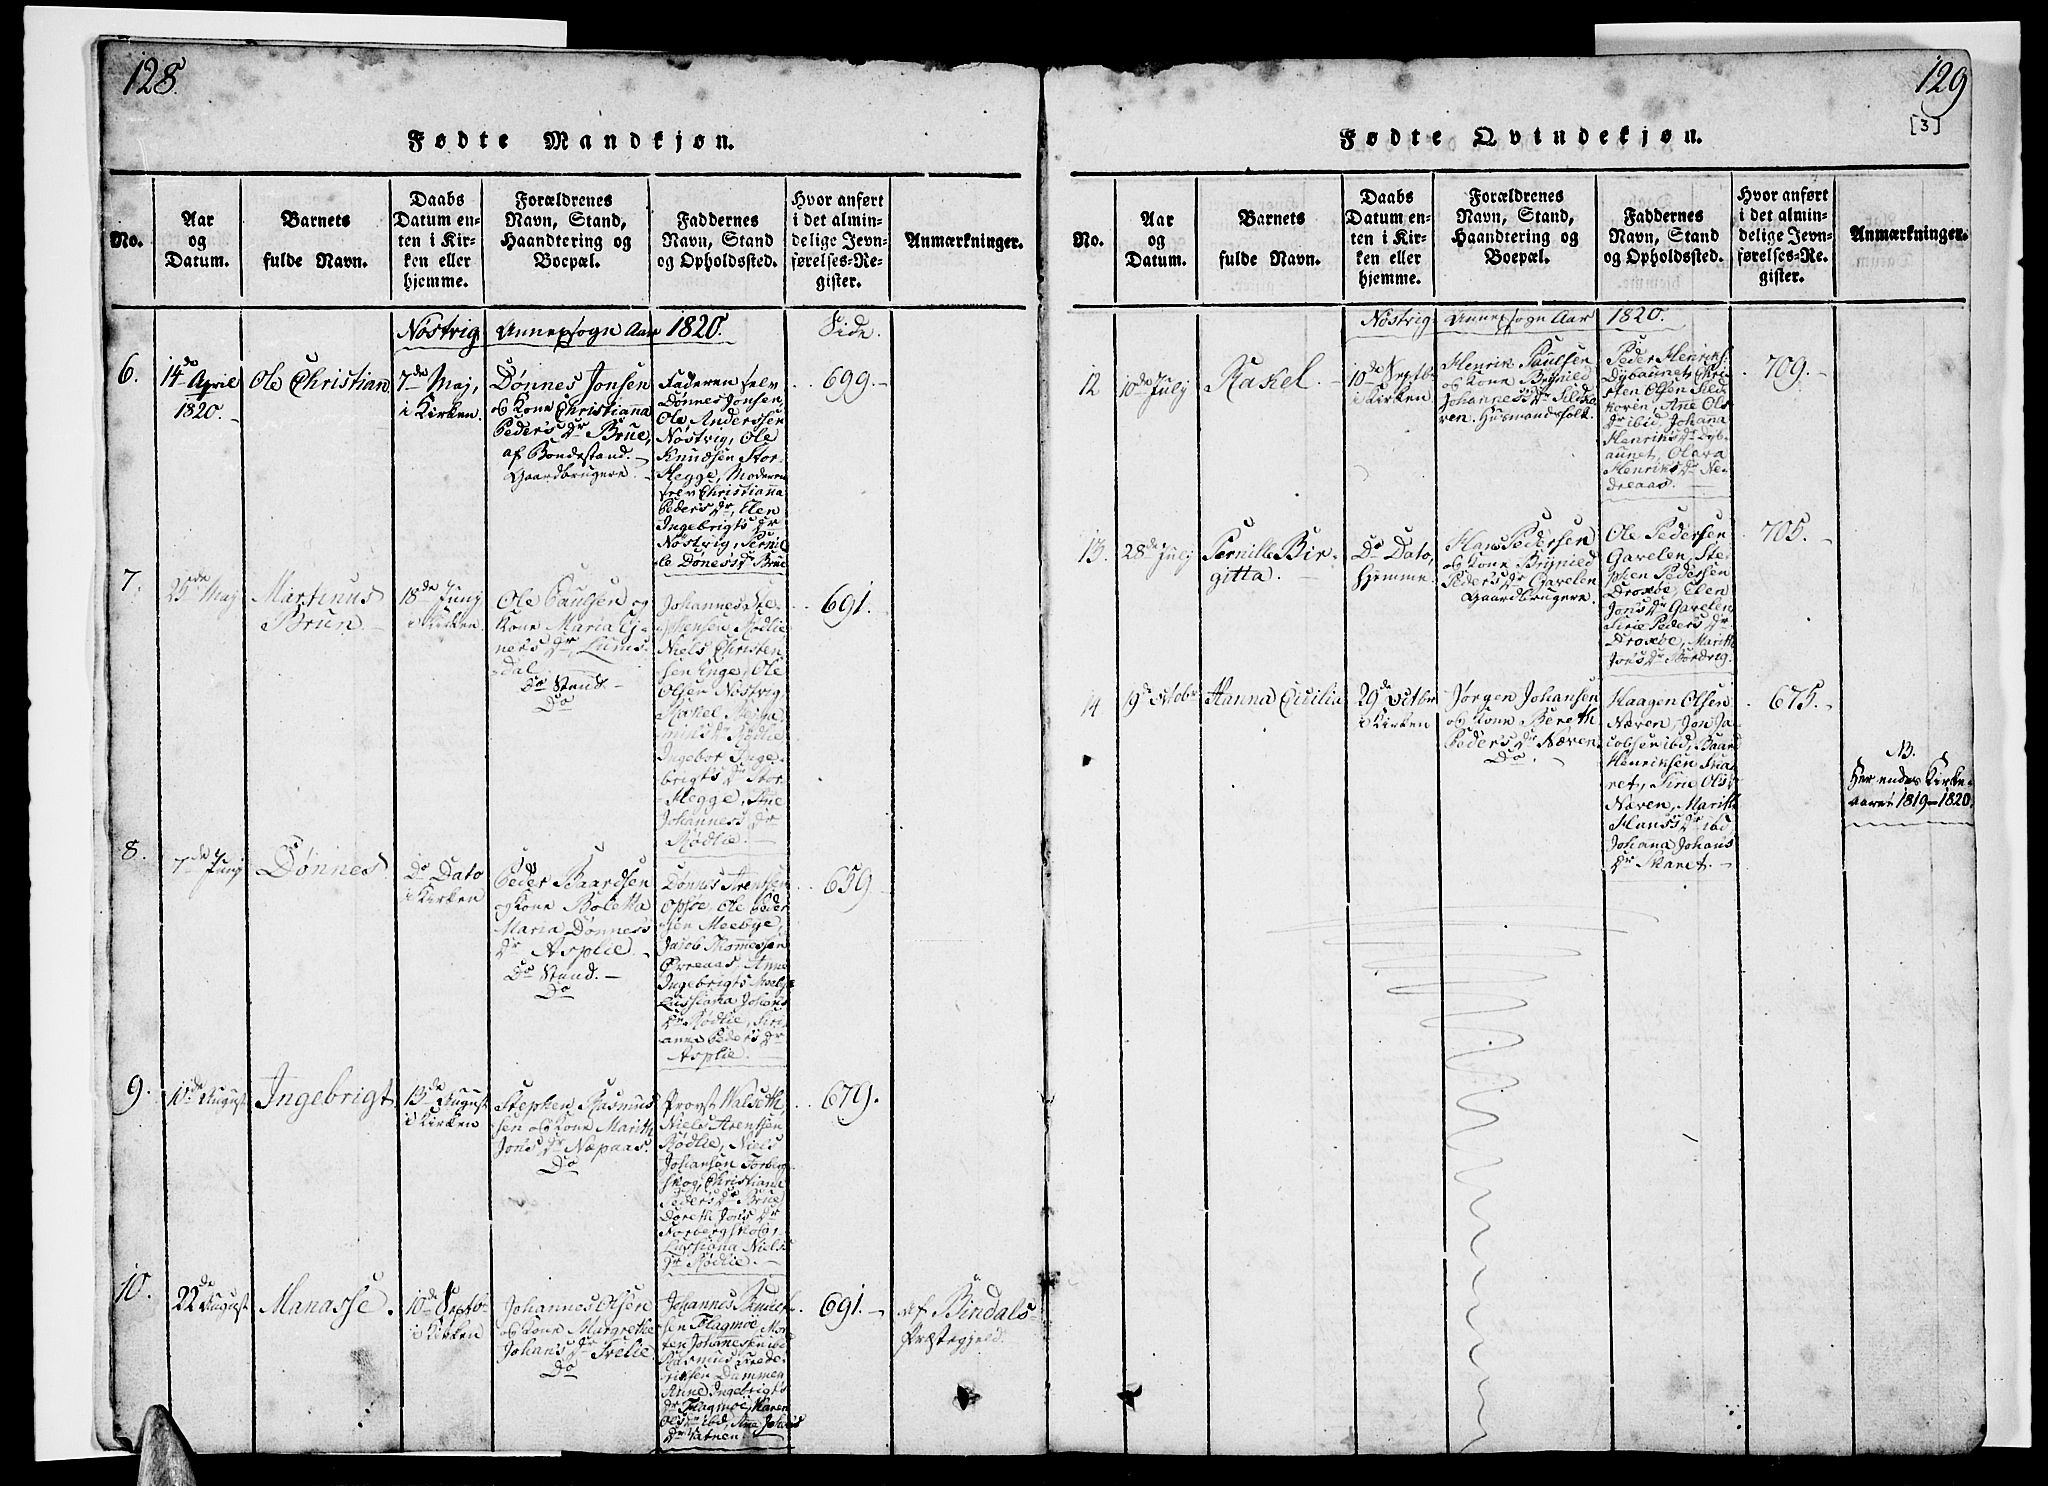 128.
Fødte Mandkjøn.
No.
Aar
og
Datum.
Barnets
fulde Navn.
Daabs
Datum en-
ten i Kir-
ken eller
hjemme.
Forældrenes
Navn, Stand,
Haandtering og
Boepæl.
Faddernes
Navn, Stand
og Opholdssted.
Hvor anført
i det almin-
delige Jevn-
førelses-Re-
gister.
Anmærkninger.
Nøstvig Annexsogn Aar 1820.
Side.
6.
14de April
1820.
Ole Christian.
7de Maj,
i Kirken.
Dønnes Jonsen
og Kone Christianna
Peders Dr Brue,
af Bondestand.
Gaardbrugere.
Faderen selv
Dønnes Jonsen,
Ole Anderssen
Nøstvig, Ole
Knudsen Stor-
Hegge, Moderen
selv Christianna
Peders Dr, Elen
Ingebrigts Dr
Nøstvig, Pernil-
le Dønes Dr Brue
699.
7.
25de Maj
Martinus
Brun
18de Junj
i Kirken.
Ole Paulsen og
Kone Maria Ej-
ners Dr, Lums-
dal
Do Stand
Do
Johannes Ste-
phensen Rødlie
Niels Christen
sen Enge, Ole
Olsen Nøstvig,
Rødlie
Ingebor Inge-
brigts Dr Stor-
Hegge, Ane
Johannes Dr
Rødlie.
691.
8.
7de Junj
Dønnes
Do Dato
i Kirken
Peder Baardsen
og Kone Boletta
Maria Dønness
Dr Asplie.
Do Stand.
Do
Dønnes Arentsen
Opsøe, Ole Peder
sen Meebye,
Jacob Thomessen
Øvreaas, Anne
Ingebrigts
Lussiana Johans
Dr Rødlie, Siri-
anna Peders Dr
Asplie.
659
9.
10de August
Ingebrigt
13de August
i Kirken
Stephen Rasmus
sen og Kone Marith
Jons Dr Næpaas.
Do
Provst Walseth,
Niels Arentsen
Rødlie, Niels
Johansen Forberg-
skog, Christiana
Peders Dr Brue
Doreth Jons Dr
Forbergskog,
Lussiana Niels
Dr Rødlie.
679.
10.
22de August
Manasse.
10de Septb.
i Kirken
Johannes Olsen
og Kone Margrethe
Johans Dr Trelie
Do
Johannes Knud-
sen Flagmøe, Mor-
ten Johanesen ibd
Rasmus Frede-
riksen Dammen
Anne Ingebrigts
Dr Flagmøe, Karen
Ols Dr ibd, Ane Johans
Dr Vatnen.
691.
af Bindals
Præstegjeld.
129
[3]
Fødte Qvindekjøn.
No.
Aar
og
Datum.
Barnets
fulde Navn.
Daabs
Datum en-
ten i Kir-
ken eller
hjemme.
Forældrenes
Navn, Stand,
Haandtering og
Boepæl.
Faddernes
Navn, Stand
og Opholdssted.
Hvor anført
i det almin-
delige Jevn-
førelses-Re-
gister.
Anmærkninger.
Nøstvig Annexsogn Aar 1820.
12
10de Julj
Rakel.
10de Septb.
i Kirken.
Henrik Paulsen
og Kone Brynild
Johannes Dr Sildha-
ven. Husmandsfolk.
Peder Henriks.
Dybaunet, Chri-
sten Olsen
Ane Ols
Dr ibid, Johana
Henriks Dr Dyb-
aunet, Olava
Henriks Dr Ne-
dreaas.
709.
13.
28de Julj
Pernille Bir-
gitta.
Do Dato,
hjemme.
Hans Pedersen
og Kone Brynild
Peders Dr Gavelen
Gaardbrugere.
Ole Pedersen
Gavelen, Ste-
phen Pedersen
Droxøe, Elen
Jons Dr Gavelen
Sirie Peders Dr
Droxøe, Marith
Jons Dr Nordvig.
705.
14
9de Octobr
Hanna Cicilia
29de Octbr
i Kirken
Jørgen Johansen
og Kone Bereth
Peders Dr Næven
Do.
Haagen Olsen
Næven, Jon Ja-
cobsen ibd, Baard
Henriksen Ska-
ret, Sirie Ols Dr
Næven, Marith
Hans Dr ibd
Johana Johans
Dr Skaret.
675.
NB.
Her endes Kirke-
aaret 1819-1820.